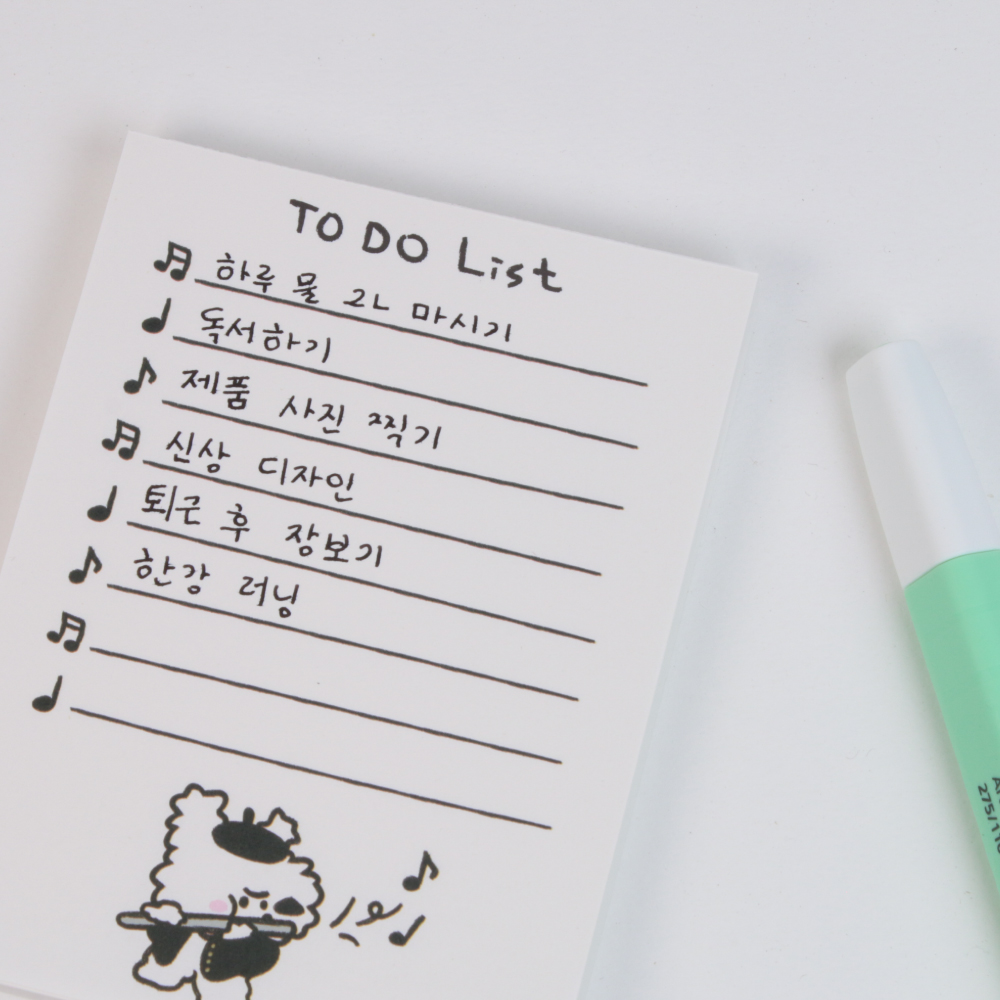 TO DO List
하루 물 2L 마시기
독서하기
제품 사진 찍기
신상 디자인
퇴근 후 장보기
한강 러닝